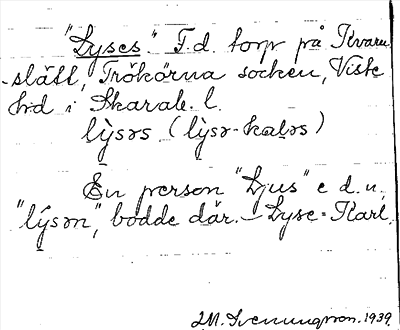 "Lyses". F.d. torp på Kvarn
-slätt, Trökörna socken, Viste
hd i Skarab. l.
lỳsəs (lỳsə-kaləs)
En person "Ljus" e d. n,
"lýsən", bodde där. - Lyse-Karl.
M. Svenungsson. 1939